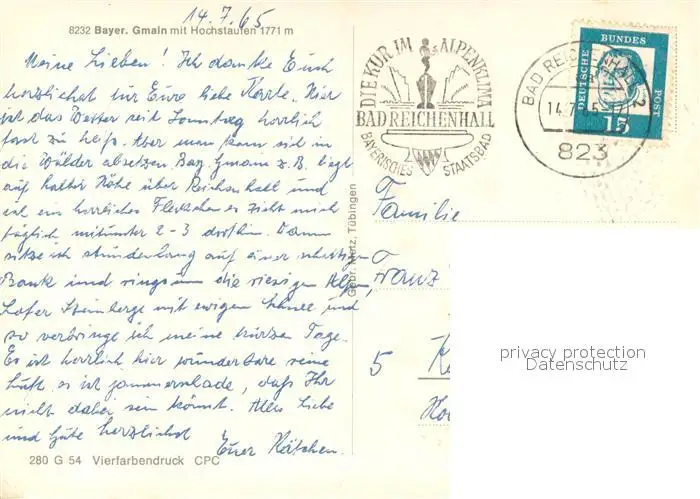 14.7.65
8232 Bayer. Gmain mit Hochstaufen 1771 m
Meine Lieben! Ich danke Euch
herzlichst für Eure liebe Karte. Hier
ist das Wetter seit Sonntag herrlich
fast zu heiß. Aber man kann sich in
die Wälder absetzen Bay. Gmain z.B. liegt
auf halber Höhe über Reichenhall und
ist ein herrliches Fleckchen es zieht mich
täglich mitunter 2-3 dorthin. Dann
sitze ich stundenlang auf einer schattigen
Bank und ringsum die riesigen Alpen,
Lofer Steinberge mit ewigem Schnee und
so verbringe ich meine kurzen Tage.
Es ist herrlich hier wunderbare reine
Luft, es ist jammerschade, daß Ihr
nicht dabei sein könnt. Alles Liebe
und Gute herzlichst
Euer Kätchen.
280 G 54 Vierfarbendruck CPC
Gebr. Metz, Tübingen
DIE KUR IM ALPENKLIMA
BAD REICHENHALL
BAYERISCHES STAATSBAD
BAD REICHENHALL 2
14.7.65
823
DEUTSCHE BUNDESPOST
15
Familie
Franz
5
privacy protection
Datenschutz